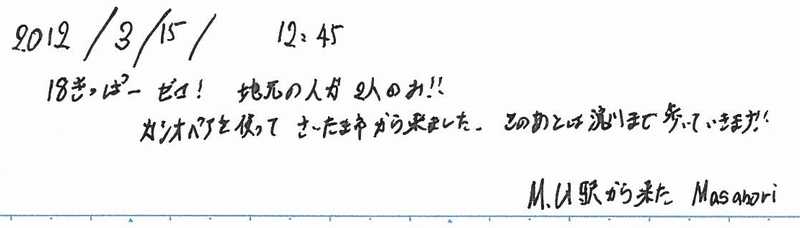 2012/3/15/ 12:45
18きっぱー ゼロ! 地元の人が2人のみ!!
カシオペアを使って さいたま市から来ました。 このあとは滝川まで歩いていきます!!
M.U駅から来た Masanori